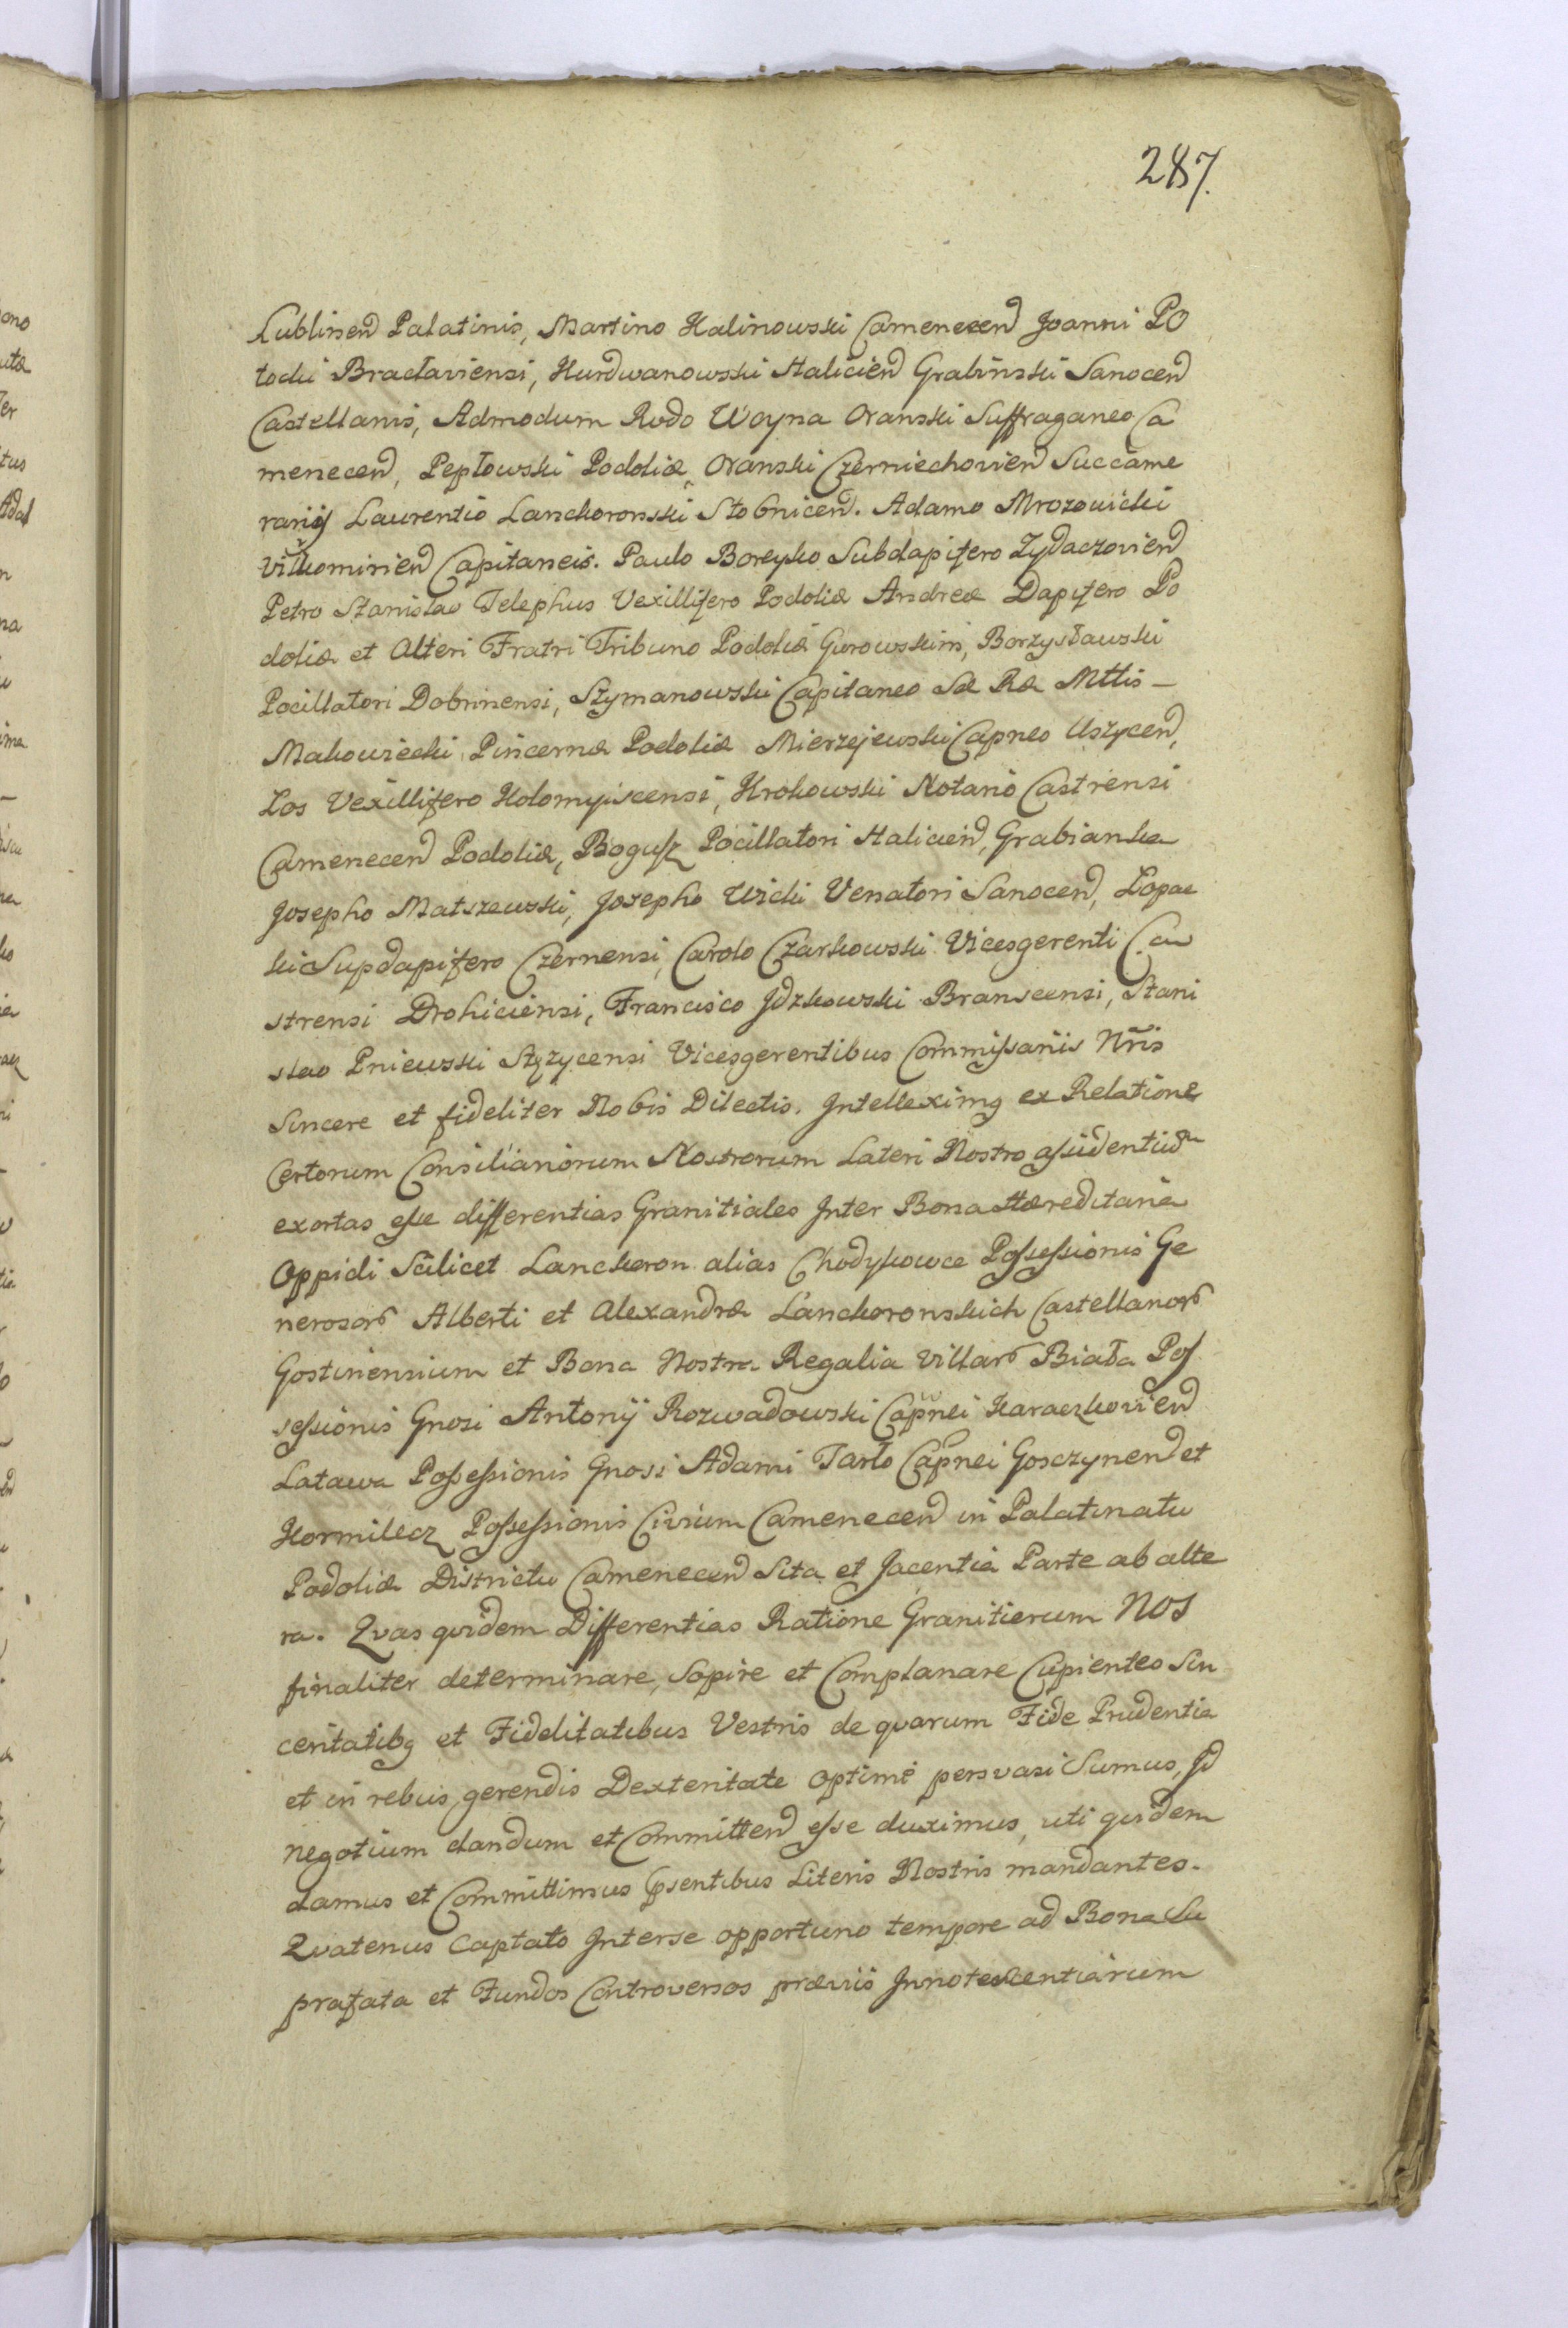 287.
Lublinen Palatinis, Martino Kalinowski Camenecen Joanni Po
tocki Bracłaviensi, Kurdwanowski Halicien Grabinski Sanocen
Castellanis, Admodum Rndo Woyna Oranski Suffraganeo Ca
menecen, Pepłowski Podoliæ, Oranski Czerniechovien Succame
rarijs Laurentio Lanckoronski Stobnicen. Adamo Mrozowicki
vilkomirien Capitaneis. Paulo Boreyko Subdapifero Zydaczovien
Petro Stanislao Telephus Vexillifero Podoliæ Andreæ Dapifero Po
doliæ et Alteri Fratri Tribuno Podoliæ Gurowskim, Borzysławski
Pocillatori Dobrinensi, Szymanowski Capitaneo Sæ Ræ Mttis –
Makowiecki Pincernæ Podoliæ Mierzejewski Capneo Uszycen,
Los Vexillifero Kolomyiscensi, Krokowski Notario Castrensi
Camenecen Podoliæ, Bogusz Pocillatori Halicien, Grabianka
Josepho Matszewski, Josepho Wicki Venatori Sanocen, Lopac
ki Supdapifero Czernensi, Carolo Czarkowski Vicesgerenti Ca
strensi Drohiciensi, Francisco Jdzkowski Branscensi, Stani
slao Pniewski Stęzycensi Vicesgerentibus Commissariis Nris
Sincere et fideliter Nobis Dilectis. Intelleximq ex Relatione
Certorum Consiliariorum Nostrorum Lateri Nostro assidentium
exortas esse differentias Granitiales Inter Bona Hæreditaria
Oppidi Scilicet Lanckoron alias Chodykowce Possessionis Ge
nerosor Alberti et Alexandræ Lanckoronskich Castellanor
Gostinensium et Bona Nostra Regalia Villar Biała Pos
sessionis Gnosi Antonij Rozwadowski Capnei Karaczkovien
Latawa Possessionis Gnosi Adami Tarło Capnei Gosczynen et
Kormilecz Possessionis Civium Camenecen in Palatinatu
Podoliæ Districtu Camenecen Sita et Jacentia Parte ab alte
ra. Qvas qvidem Differentias Ratione Granitierum NOS
finaliter determinare, Sopire et Complanare Cupientes Sin
ceritatibq et Fidelitatibus Vestris de qvarum Fide Prudentia
et in rebus gerendis Dexteritate optime persvasi Sumus, Id
negotium dandum et Committen esse duximus, uti qvidem
damus et Committimus psentibus Literis Nostris mandantes.
Qvatenus Captato Interse opportuno tempore ad Bona Su
prafata et Fundos Controversos præviis Innotescentiarum